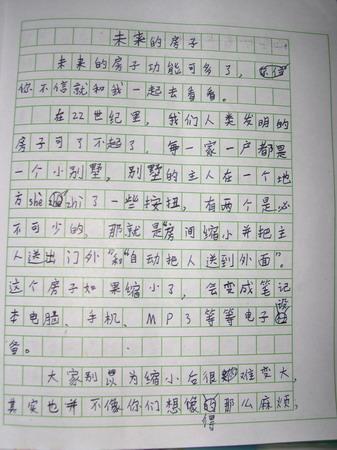 未来的房子
未来的房子功能可多了，你
你不信就和我一起去看看。
在22世纪里，我们人类发明的
房子可了不起了，每一家一户都是
一个小别墅，别墅的主人在一个地
方shè zhì了一些按扭，有两个是必
不可少的，那就是“房间缩小并把主
人送出门外”和“自动把人送到外面”。
这个房子如果缩小了，会变成笔记
本电脑、手机、MP3等等电子设
备。
大家别以为缩小后很难变大，
其实也并不像你们想像得那么麻烦，